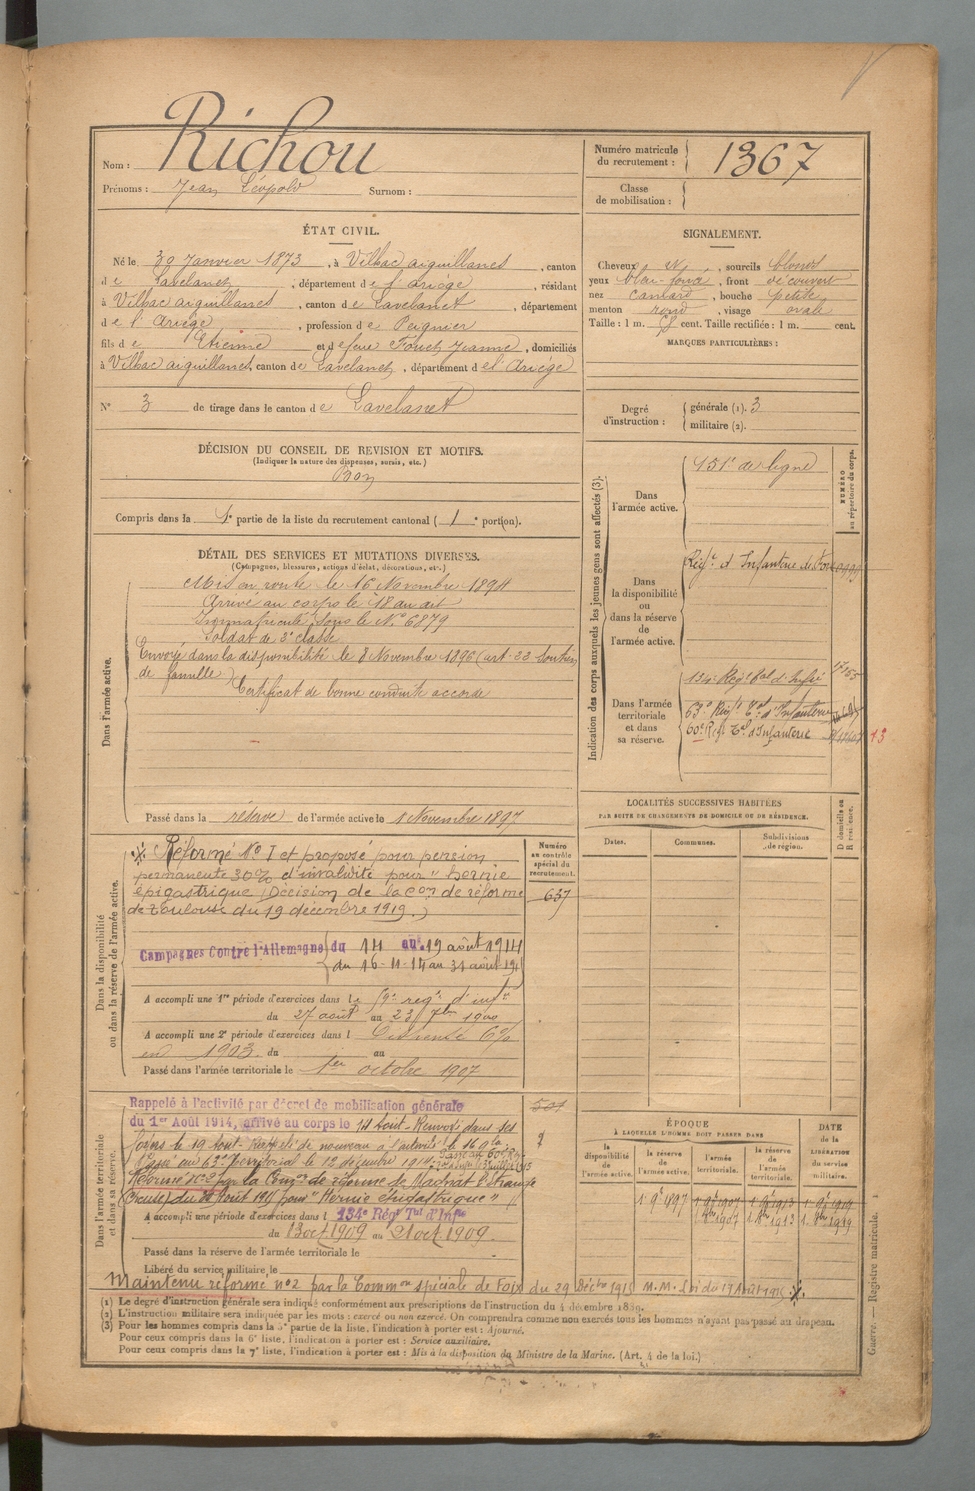 Nom : Richou
Prénoms : Jean Léopold Surnom :
Numéro matricule du recrutement : 1367
Classe de mobilisation :
ÉTAT CIVIL.
Né le 30 Janvier 1873, à Vilhac aiguillanes, canton
de Lavelanet, département de l'ariège, résidant
à Vilhac aiguillanes, canton de Lavelanet, département
de l'Ariège, profession de Peignier
fils de Etienne et de feue Fouet Jeanne, domiciliés
à Vilhac aiguillanes, canton de Lavelanet, département de l'Ariège
N° 3 de tirage dans le canton de Lavelanet
SIGNALEMENT.
Cheveux , sourcils blonds
yeux bleu foncé, front découvert
nez camard, bouche petite
menton rond, visage ovale
Taille : 1 m. cent. Taille rectifiée : 1 m. cent.
MARQUES PARTICULIÈRES :
Degré d'instruction : générale (1). 3
militaire (2).
DÉCISION DU CONSEIL DE REVISION ET MOTIFS.
(Indiquer la nature des dispenses, sursis, etc.)
Bon
Compris dans la 1e partie de la liste du recrutement cantonal (1e portion).
DÉTAIL DES SERVICES ET MUTATIONS DIVERSES.
(Campagnes, blessures, actions d'éclat, décorations, etc.)
Dans l'armée active.
Mis en route le 16 Novembre 1894
Arrivé au corps le 18 au dit
Immatriculé sous le N° 6879
Soldat de 2e classe
Envoyé dans la disponibilité le 8 Novembre 1896 (art. 22 Soutien
de famille)
Certificat de bonne conduite accordé
Passé dans la réserve de l'armée active le 1 Novembre 1897
Indication des corps auxquels les jeunes gens sont affectés (3).
NUMÉRO au répertoire du corps.
Dans l'armée active. 151e de ligne
Dans la disponibilité ou dans la réserve de l'armée active. Régt d'Infanterie de
Dans l'armée territoriale et dans sa réserve. 134e Régt Tal d'Infie
63e Régt Tal d'Infanterie
60e Régt Tal d'Infanterie
13
LOCALITÉS SUCCESSIVES HABITÉES
PAR SUITE DE CHANGEMENTS DE DOMICILE OU DE RÉSIDENCE.
D domicile ou R résidence.
Dates. Communes. Subdivisions de région.
Dans la disponibilité ou dans la réserve de l'armée active.
Numéro au contrôle spécial du recrutement.
637
Réformé No 1 et proposé pour pension
permanente 30% d'invalidité pour "hernie
épigastrique (Décision de la Con de réforme
de Toulouse du 19 décembre 1919.)
Campagnes Contre l'Allemagne du 14 au 19 août 1914
du 16-11-14 au 31 août 1915
A accompli une 1re période d'exercices dans le 59e régt d'infie
du 27 août au 23 7bre 1900
A accompli une 2e période d'exercices dans l Dispensé 6%
en 1903 du au
Passé dans l'armée territoriale le 1er octobre 1907
Dans l'armée territoriale et dans sa réserve.
501
Rappelé à l'activité par décret de mobilisation générale
du 1er Août 1914, arrivé au corps le 14 Aout. Renvoyé dans ses
foyers le 19 Aout. Rappelé de nouveau à l'activité le 16 9bre
Passé au 63e Territorial le 12 décembre 1914. Passé au 60e Rgt
Réformé No 2 par la Comon de réforme de
du Août 1915 pour "Hernie épigastrique"
A accompli une période d'exercices dans l 134e Régt Tal d'Infie
du 13 oct 1909 au 21 oct 1909.
Passé dans la réserve de l'armée territoriale le
Libéré du service militaire le
ÉPOQUE
À LAQUELLE L'HOMME DOIT PASSER DANS
DATE de la LIBÉRATION du service militaire.
la disponibilité de l'armée active. la réserve de l'armée active. l'armée territoriale. la réserve de l'armée territoriale.
1er 9bre 1897 1er 9bre 1907 1er 9bre 1913 1er 9bre 1919
1er 8bre 1907 1er 8bre 1913 1er 8bre 1919
Maintenu réformé no 2 par la Common spéciale de Foix du 29 Décbre 1915 M.M. Loi du 17 Août 1915
(1) Le degré d'instruction générale sera indiqué conformément aux prescriptions de l'instruction du 4 décembre 1889.
(2) L'instruction militaire sera indiquée par les mots : exercé ou non exercé. On comprendra comme non exercés tous les hommes n'ayant pas passé au drapeau.
(3) Pour les hommes compris dans la 5e partie de la liste, l'indication à porter est : Ajourné.
Pour ceux compris dans la 6e liste, l'indication à porter est : Service auxiliaire.
Pour ceux compris dans la 7e liste, l'indication à porter est : Mis à la disposition du Ministre de la Marine. (Art. 4 de la loi.)
Guerre. — Registre matricule.